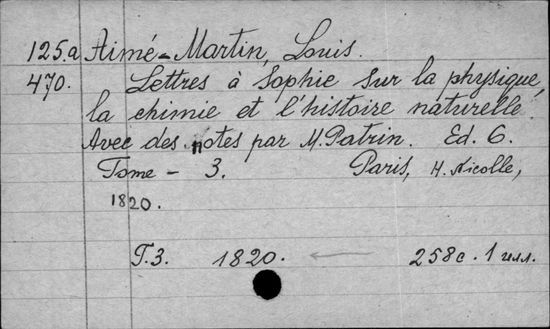 125.a Aimé-Martin, Louis.
470. Lettres à Sophie sur la physique,
la chimie et l'histoire naturelle.
Avec des notes par M. Patrin. Ed. 6.
Tome - 3. Paris, H. Nicolle,
1820.
T.3. 1820. ← 258c. 1 илл.